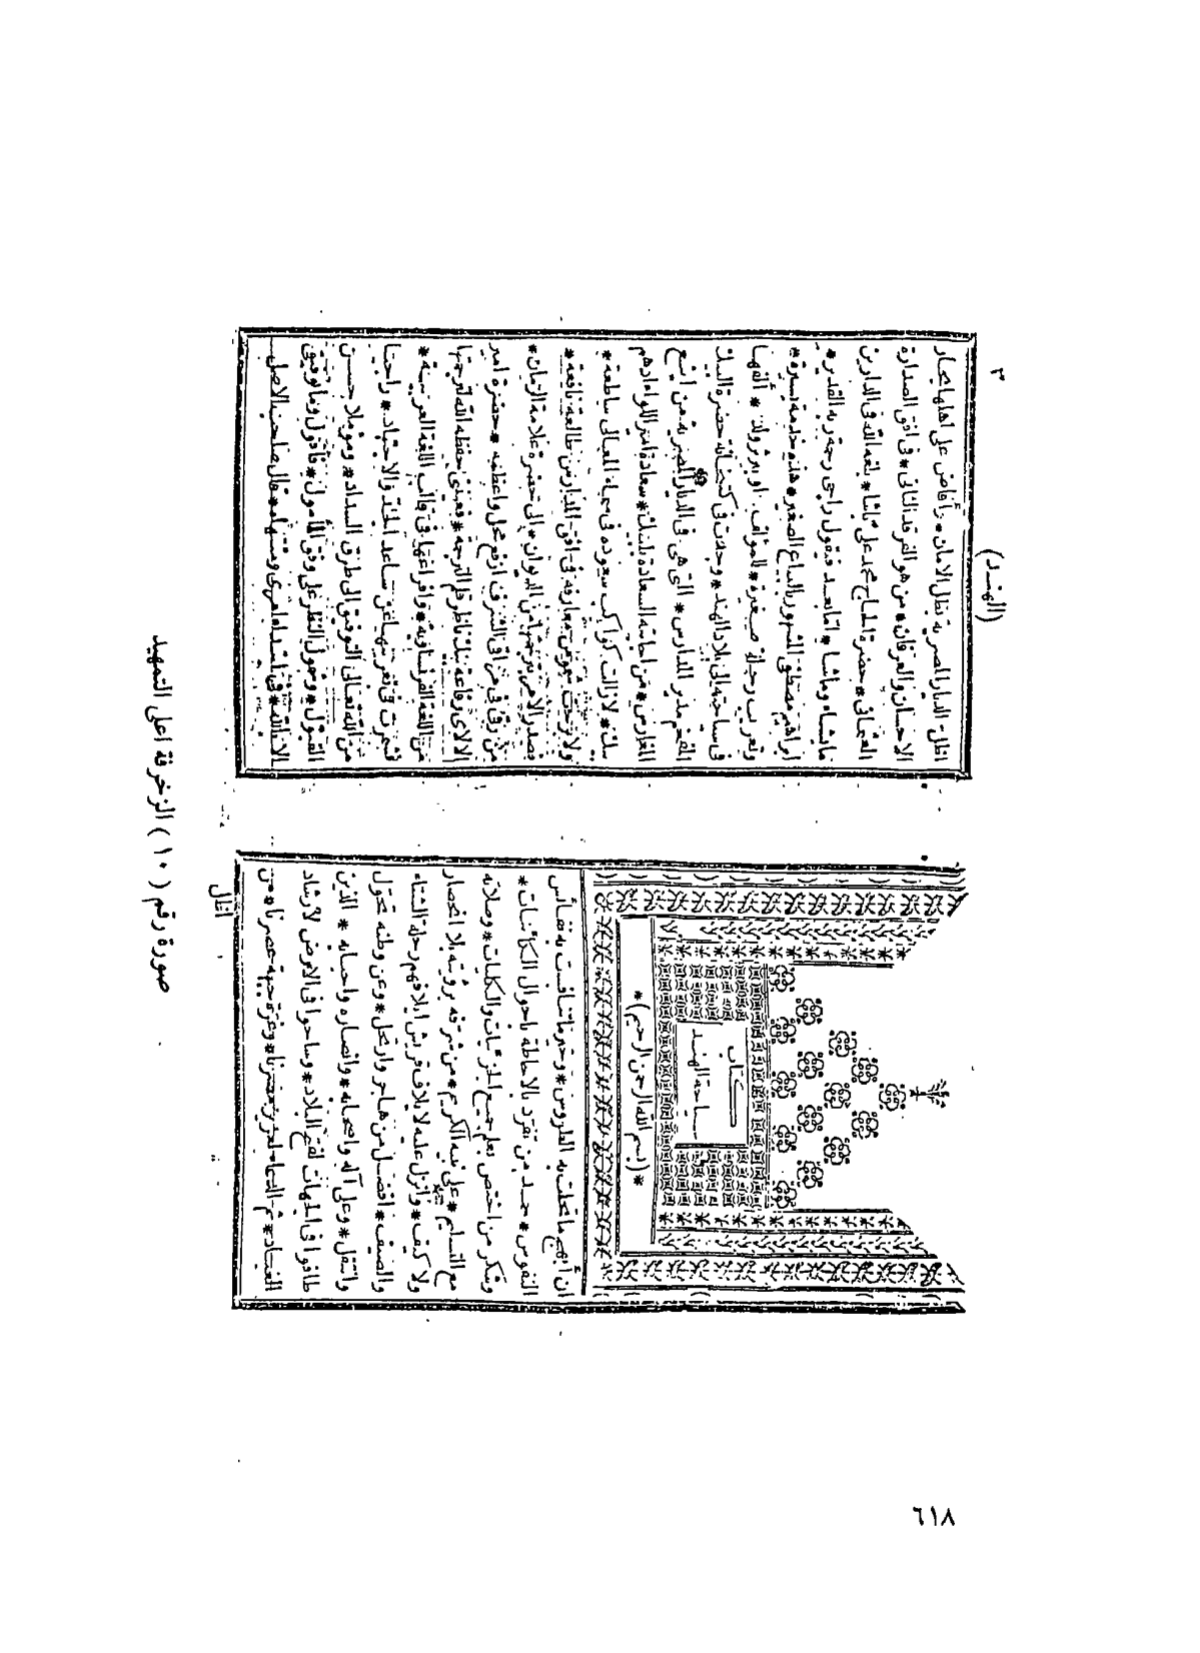 كتاب
سياحة الهند
*(بسم الله الرحمن الرحيم)*
ان أبهج ما تحلت به الطروس * وخير ما تنافست به نفائس
النفوس * حمد من تفرد بالاحاطة باحوال الكائنات *
وشكر من اختص بعلم جميع الجزئيات والكليات * وصلاته
مع التسليم * على نبيه الكريم * من شرفه برؤيته بلا انحصار
ولا كيف * وأنزل عليه لايلاف قريش ايلافهم رحلة الشتاء
والصيف * افضل من هاجر وارتحل * وعن وطنه تحول
وانتقل * وعلى آله واصحابه * وانصاره واحبابه * الذين
طافوا فى الجهات لفتح البلاد * وساحوا فى الارض لارشاد
العباد * ثم الدعاء لعزيز مصرنا * وغرة جبهة عصرنا * من
اظل
٣
(الهند)
اظل الديار المصرية بظل الامان * وأفاض على اهلها بحار
الاحسان والعرفان * من هو الفرقد الثانى * فى افق الصدارة
العثمانى * حضرة الحاج محمد على باشا * بلغه الله فى الدارين
ما يشاء وما شا * اما بعد فيقول راجى رحمة ربه القدير *
ابراهيم مصطفى الشهير بالبياع الصغير * هذه خدمة يسيرة *
وتعريب رحلة صغيرة * للمؤلف اوبير ثرولد * ألفها
فى سياحته الى بلاد الهند * وجدت فى كتبخانة حضرة البيك
المفخم مدير المدارس * التى هى فى الديار المصرية من اينع
المغارس * من اجابته السعادة بلبيك * سعادة امير اللواء ادهم
بيك * لا زالت كواكب سعوده فى سماء المعالى ساطعة *
ولا برحت شموس معارفه فى افق المدارس طالعة نافعة *
فصدر الامر بترجمتها من الديوان * الى حضرة علامة الزمان *
من رقى فى مراقى الشرف ارفع محل واعظمه * حضرة امير
الالاى رفاعة بيك ناظر قلم الترجمة * فعيننى حفظه الله لترجمتها
من اللغة الفرنساوية * وافراغها فى قالب اللغة العربية *
فشمرت فى تعريبها عن ساعد الجد والاجتهاد * راجيا
من الله تعالى التوفيق الى طرق السداد * ومؤملا حسن
القبول * وحصول النظر على وفق المأمول * فأقول وما توفيق
الا بالله * فى ابتداء امرى ومنتهاه * قال صاحب الاصل
صورة رقم (١٠) الزخرفة اعلى التمهيد
٦١٨